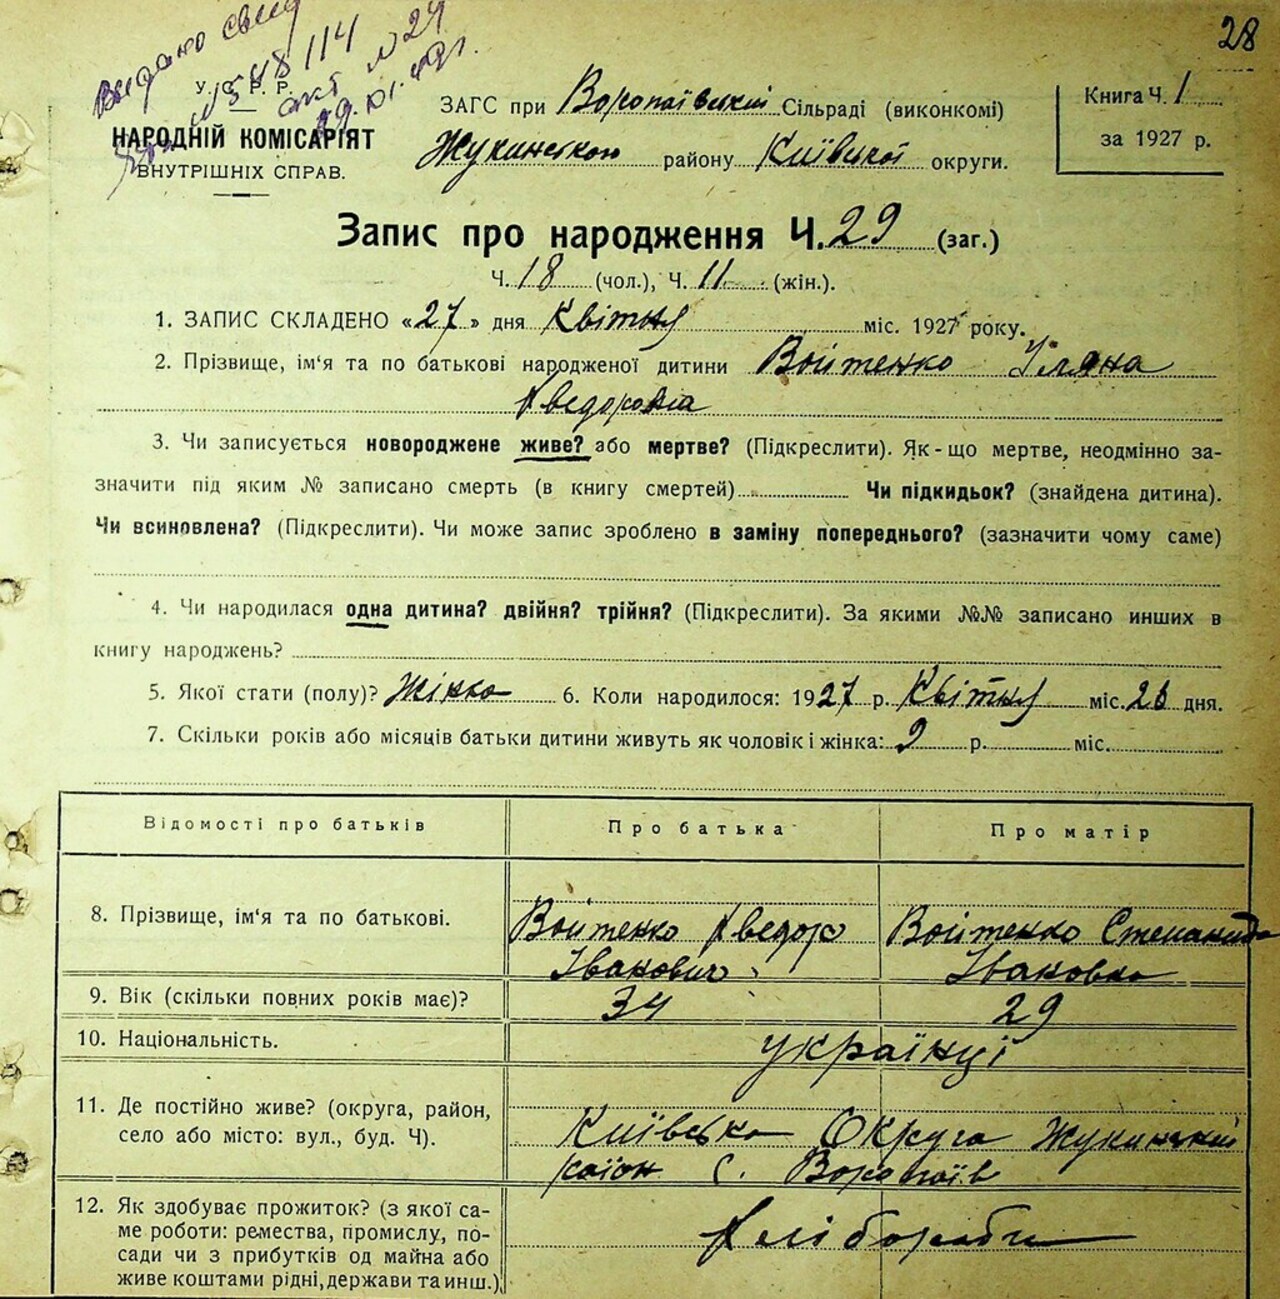 28
Видано свид
№ 548114
акт № 29
У. С. Р. Р.
НАРОДНІЙ КОМІСАРІЯТ
ВНУТРІШНІХ СПРАВ.
ЗАГС при Воропаївській Сільраді (виконкомі)
Жукинського району Київської округи.
Книга Ч. 1
за 1927 р.
Запис про народження Ч. 29 (заг.)
Ч. 18 (чол.), Ч. 11 (жін.).
1. ЗАПИС СКЛАДЕНО «27» дня Квітня міс. 1927 року.
2. Прізвище, ім'я та по батькові народженої дитини Войтенко Уляна
Хведоровна
3. Чи записується новороджене живе? або мертве? (Підкреслити). Як-що мертве, неодмінно за-
значити під яким № записано смерть (в книгу смертей) Чи підкидьок? (знайдена дитина).
Чи всиновлена? (Підкреслити). Чи може запис зроблено в заміну попереднього? (зазначити чому саме)
4. Чи народилася одна дитина? двійня? трійня? (Підкреслити). За якими №№ записано инших в
книгу народжень?
5. Якої стати (полу)? Жінка 6. Коли народилося: 1927 р. Квітня міс. 26 дня.
7. Скільки років або місяців батьки дитини живуть як чоловік і жінка: 9 р. міс.
Відомості про батьків Про батька Про матір
8. Прізвище, ім'я та по батькові. Войтенко Хведор Войтенко Степанида
Іванович Івановна
9. Вік (скільки повних років має)? 34 29
10. Національність. українці
11. Де постійно живе? (округа, район,
село або місто: вул., буд. Ч). Київська Округа Жукинський
район с. Воропаїв
12. Як здобуває прожиток? (з якої са-
ме роботи: ремества, промислу, по-
сади чи з прибутків од майна або
живе коштами рідні, держави та инш.)
Хлібороби